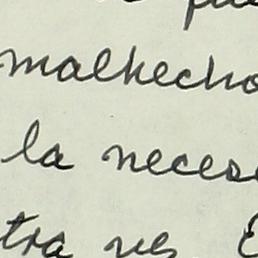 malhecho
la neces
tra vez E